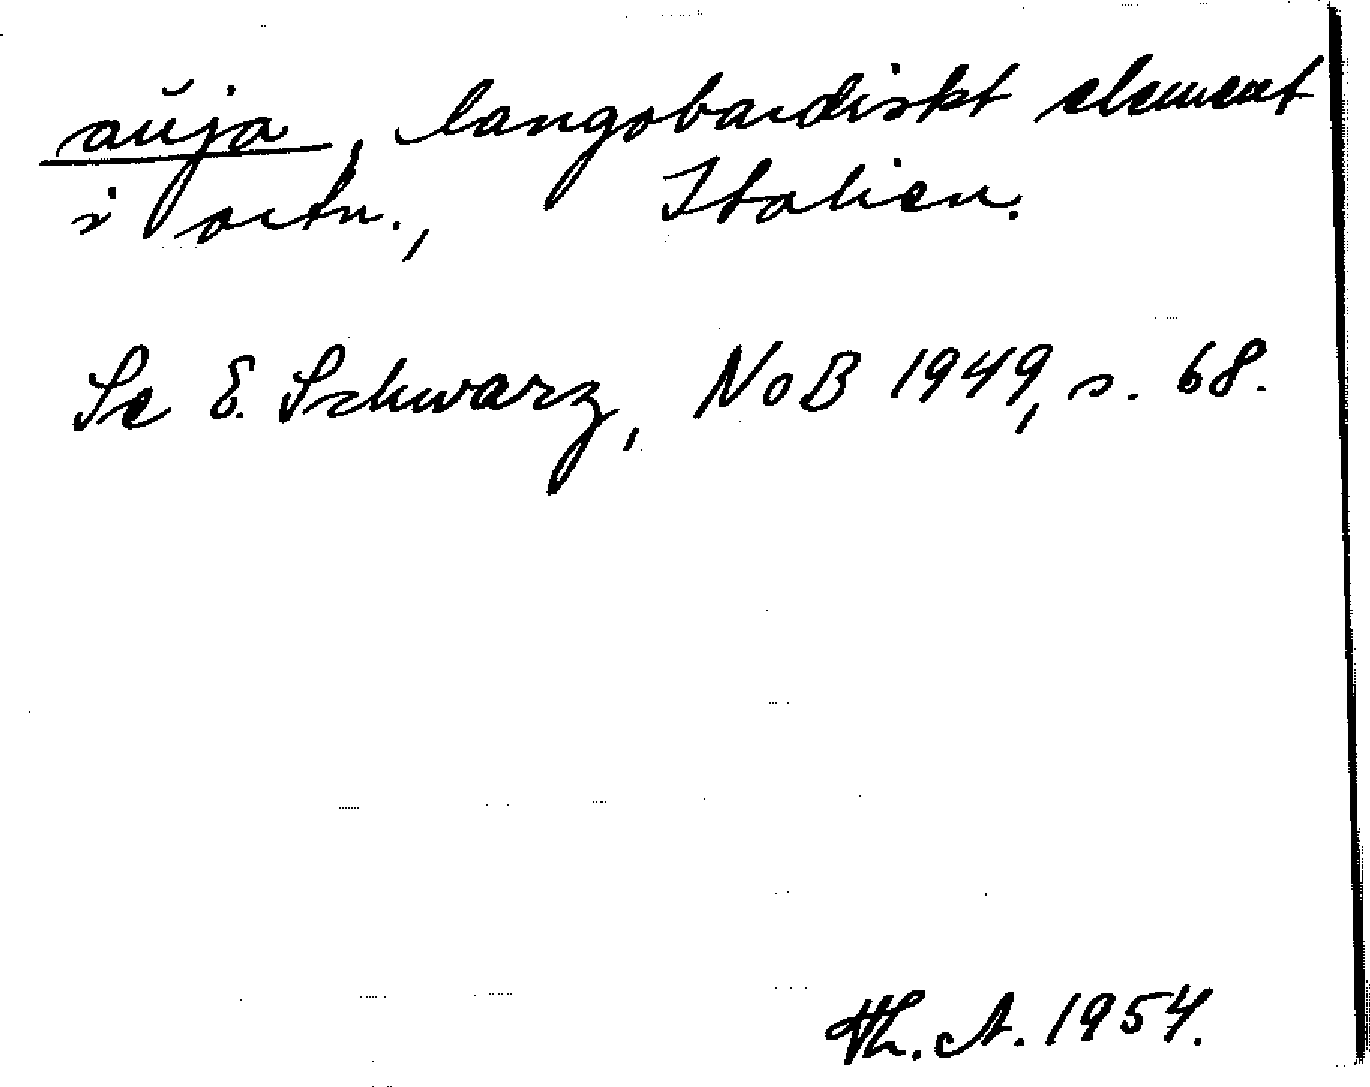 auja, langobardiskt element
i ortn., Italien.
Se E. Schwarz, NoB 1949, s. 68.
Th. A. 1954.